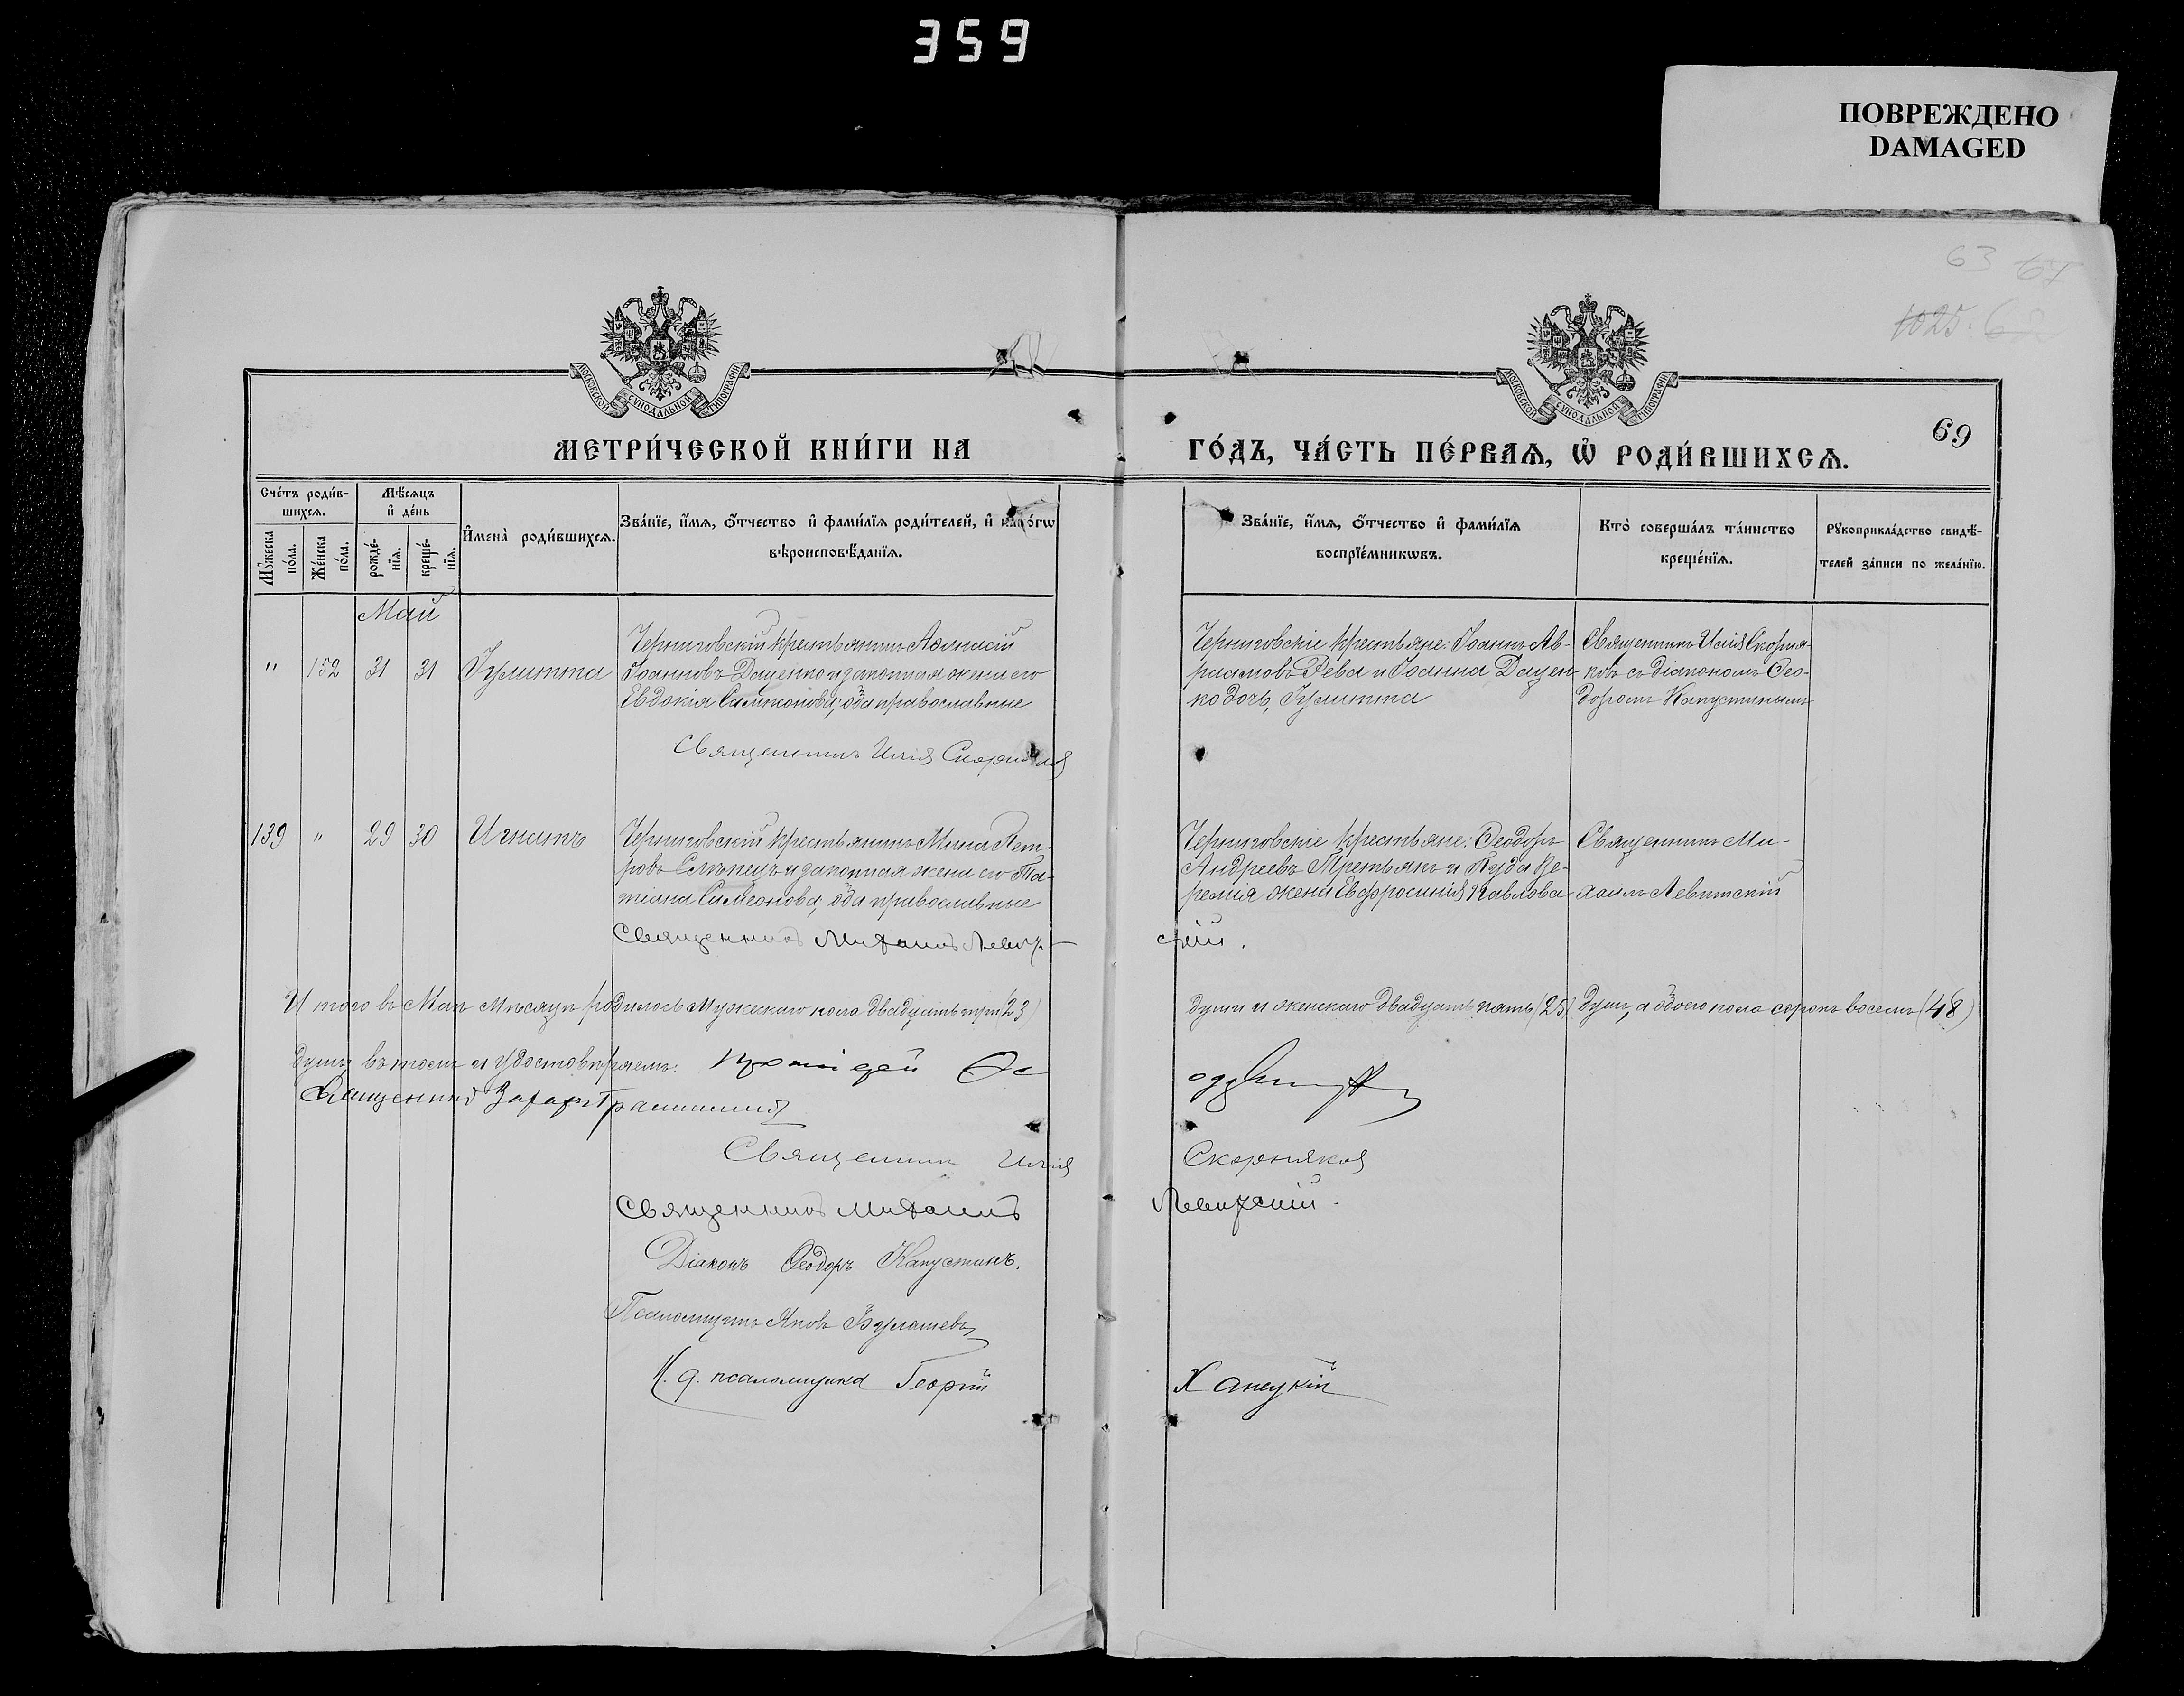 359
ПОВРЕЖДЕНО
DAMAGED
63 67
1025.
69
МОСКОВСКОЙ СУНОДАЛЬНОЙ ТИПОГРАФІИ
МОСКОВСКОЙ СУНОДАЛЬНОЙ ТИПОГРАФІИ
МЕТРИ́ЧЕСКОЙ КНИ́ГИ НА
ГО́ДЪ, ЧА́СТЬ ПЕ́РВАѦ, Ѡ҆ РОДИ́ВШИХСѦ.
Сче́тъ роди́в-
шихсѧ.
Мꙋ́жеска
по́ла.
Же́нска
по́ла.
Мѣ́сѧцъ
и҆ де́нь
рожде́-
нїѧ.
креще́-
нїѧ.
И҆мена̀ роди́вшихсѧ.
Зва́нїе, и҆́мѧ, ѻ҆́тчество и҆ фами́лїѧ роди́телей, и҆ како́гѡ
вѣроисповѣ́данїѧ.
Зва́нїе, и҆́мѧ, ѻ҆́тчество и҆ фами́лїѧ
воспрїе́мникѡвъ.
Кто̀ соверша́лъ та́инство
креще́нїѧ.
Рꙋкоприкла́дство свидѣ́-
телей за́писи по жела́нїю.
Май
" 152 31 31 Іулитта
Черниговскій крестьянинъ Аѳанасій
Іоанновъ Даценко и законная жена его
Евдокія Симеонова, оба православные
Священникъ Илія Скорняковъ
Черниговскіе крестьяне: Іоаннъ Ав-
раамовъ Рева и Іоанна Дацен-
ко дочь, Іулитта
Священникъ Илія Скорня-
ковъ съ діакономъ Ѳео-
доромъ Капустинымъ
139 " 29 30 Игнатъ
Черниговскій крестьянинъ Мина Пет-
ровъ Слѣпецъ и законная жена его Та-
тіана Симеонова, оба православные
Священникъ Михаилъ Левит-
скій.
Черниговскіе крестьяне: Ѳеодоръ
Андреевъ Третьякъ и
жена Евфросинія Павлова
Священникъ Ми-
хаилъ Левитскій
И того въ Маѣ мѣсяцѣ родилось мужескаго пола двадцать три (23)
души и женскаго двадцать пять (25) душъ, а обоего пола сорокъ восемь (48)
душъ, въ томъ и удостовѣряемъ: Протоіерей
Священникъ
Священникъ Илія Скорняковъ
Священникъ Михаилъ Левитскій.
Діаконъ Ѳеодоръ Капустинъ.
Псаломщикъ Яковъ Бурлашевъ
И. д. псаломщика Георгій Ханецкій